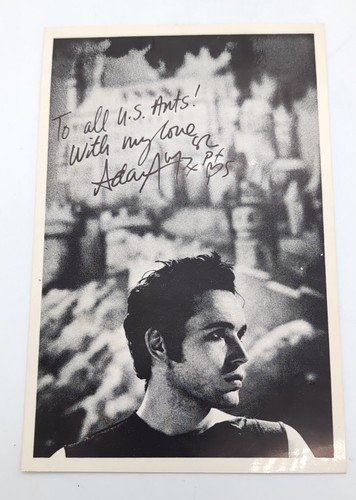 To all U.S. Ants!
With my love
Adam Ant 82